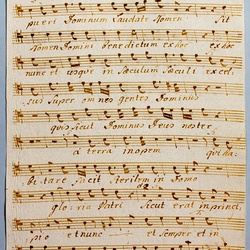 pueri Dominum Laudate Nomen Sit
Nomen Domini benedictum ex hoc ex hoc
nunc et usque in Sæculum Sæculi excel:
sus super omnes gentes Dominus
quis sicut Dominus Deus noster
a terra inopem qui ha:
bitare facit sterilem in Domo
gloria Patri Sicut erat in princi:
pio et nunc et semper et in